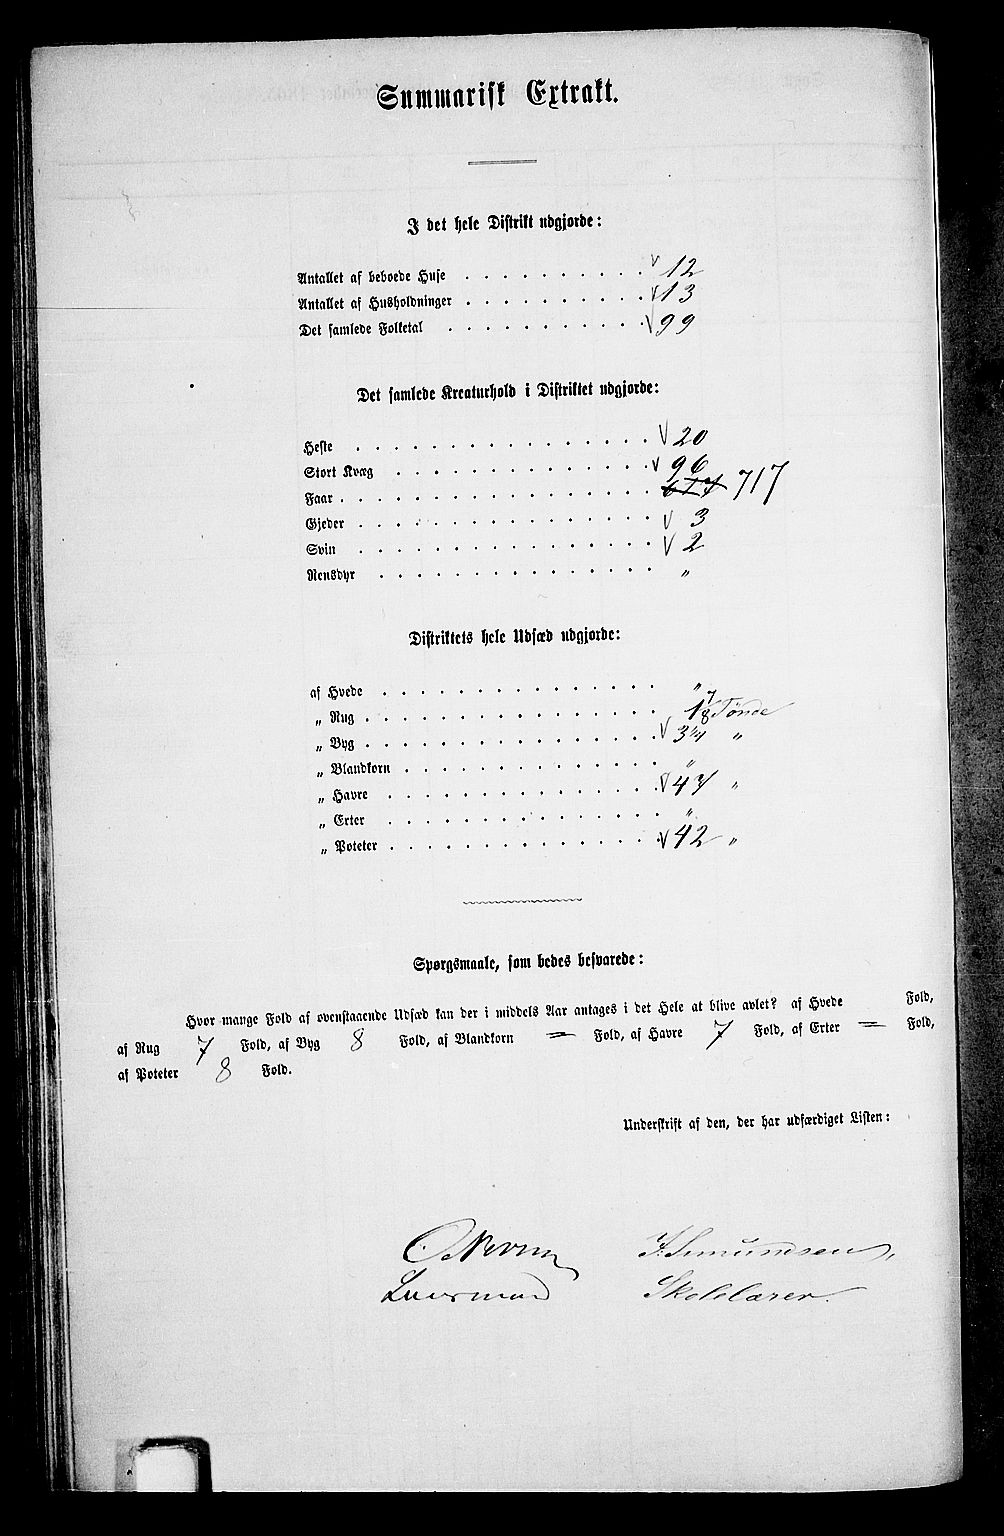 Summarisk Extrakt.
I det hele Distrikt udgjorde:
Antallet af beboede Huse . . . . . . . . . . √ 12
Antallet af Husholdninger . . . . . . . . . . √ 13
Det samlede Folketal . . . . . . . . . . . √ 99
Det samlede Kreaturhold i Distriktet udgjorde:
Heste . . . . . . . . . . . . . . . . √ 20
Stort Kvæg . . . . . . . . . . . . . . √ 96
Faar . . . . . . . . . . . . . . . . . 617 717
Gjeder . . . . . . . . . . . . . . . . √ 3
Svin . . . . . . . . . . . . . . . . √ 2
Rensdyr . . . . . . . . . . . . . . . „
Distriktets hele Udsæd udgjorde:
af Hvede . . . . . . . . . . . . . . . „
„ Rug . . . . . . . . . . . . . . . . 1 7/8 Tønde
„ Byg . . . . . . . . . . . . . . . . √ 3 1/4 „
„ Blandkorn . . . . . . . . . . . . . . „
„ Havre . . . . . . . . . . . . . . . √ „
„ Erter . . . . . . . . . . . . . . . „
„ Poteter . . . . . . . . . . . . . . . √ 42 „
Spørgsmaale, som bedes besvarede:
Hvor mange Fold af ovenstaaende Udsæd kan der i middels Aar antages i det Hele at blive avlet? af Hvede Fold,
af Rug 7 Fold, af Byg 8 Fold, af Blandkorn = Fold, af Havre 7 Fold, af Erter = Fold,
af Poteter 8 Fold.
Underskrift af den, der har udfærdiget Listen:
Skolelærer.